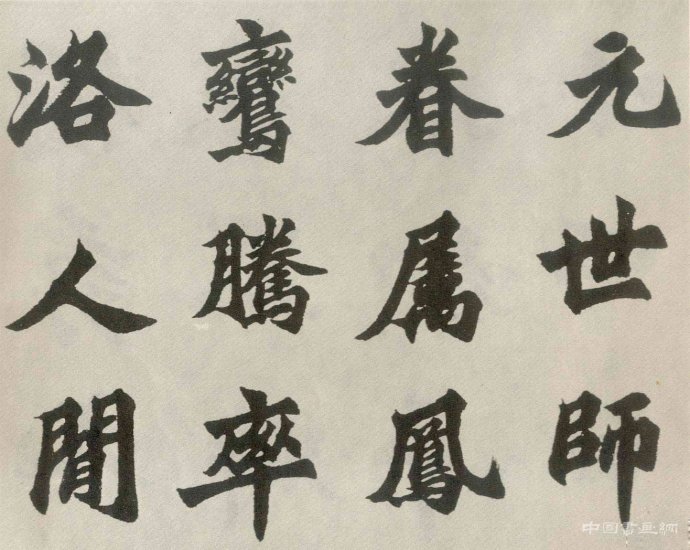 元世師
眷属鳳
鸞騰卒
洛人間
中国书画網